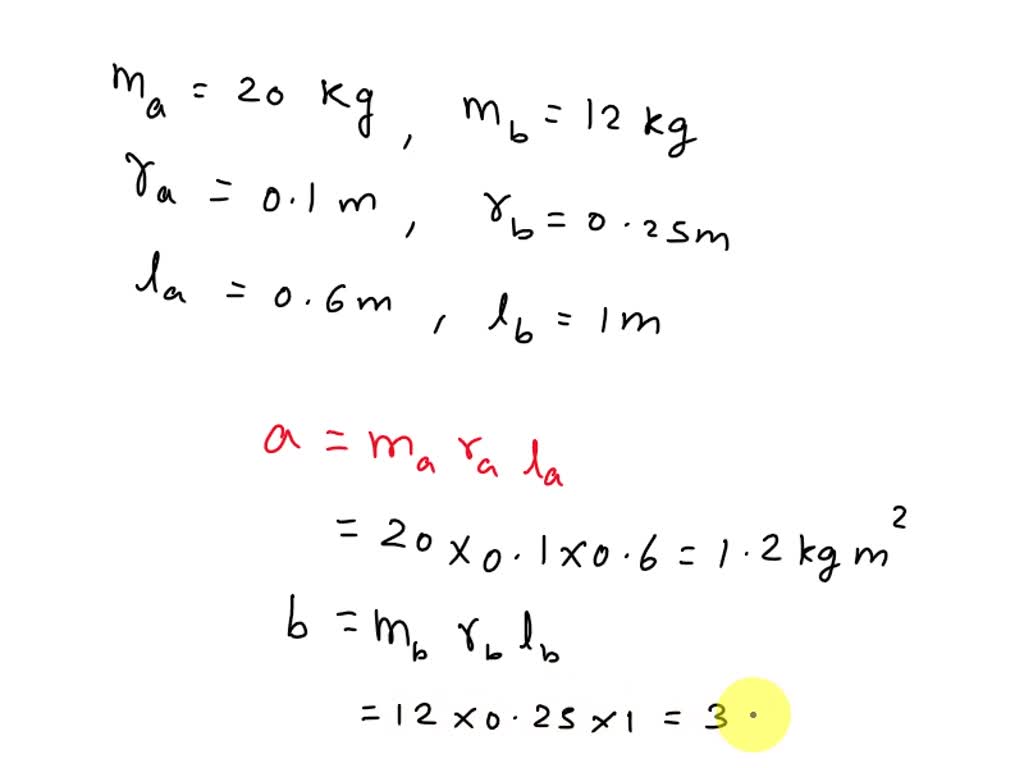 m_a = 20 kg, m_b = 12 kg
r_a = 0.1 m, r_b = 0.25m
l_a = 0.6m, l_b = 1m
a = m_a r_a l_a
= 20 × 0.1 × 0.6 = 1.2 kg m²
b = m_b r_b l_b
= 12 × 0.25 × 1 = 3